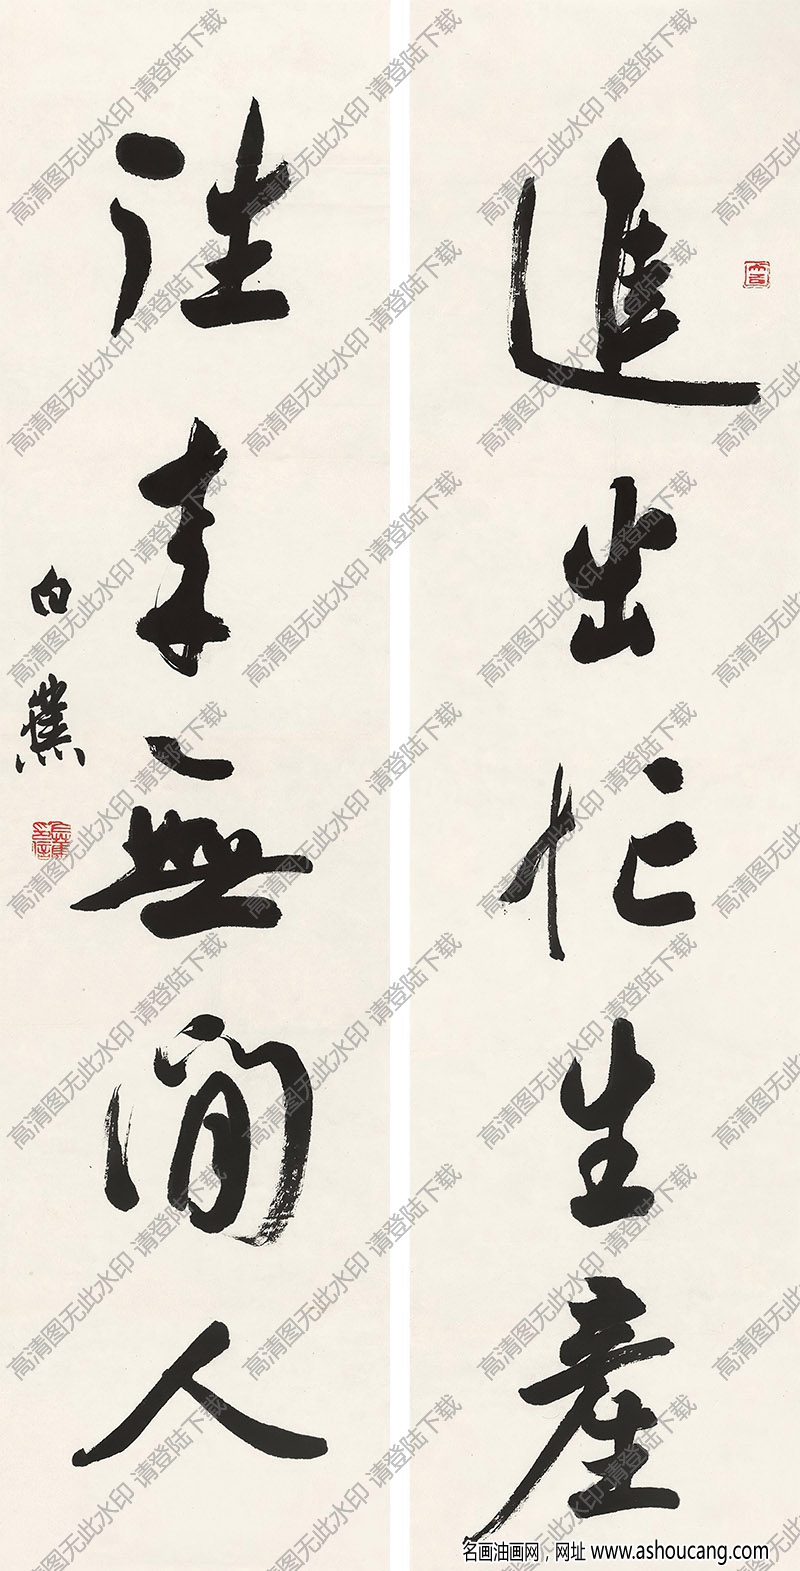 進出忙生產
往来無閒人
白蕉
高清图无此水印 请登陆下载
名画油画网，网址 www.ashoucang.com